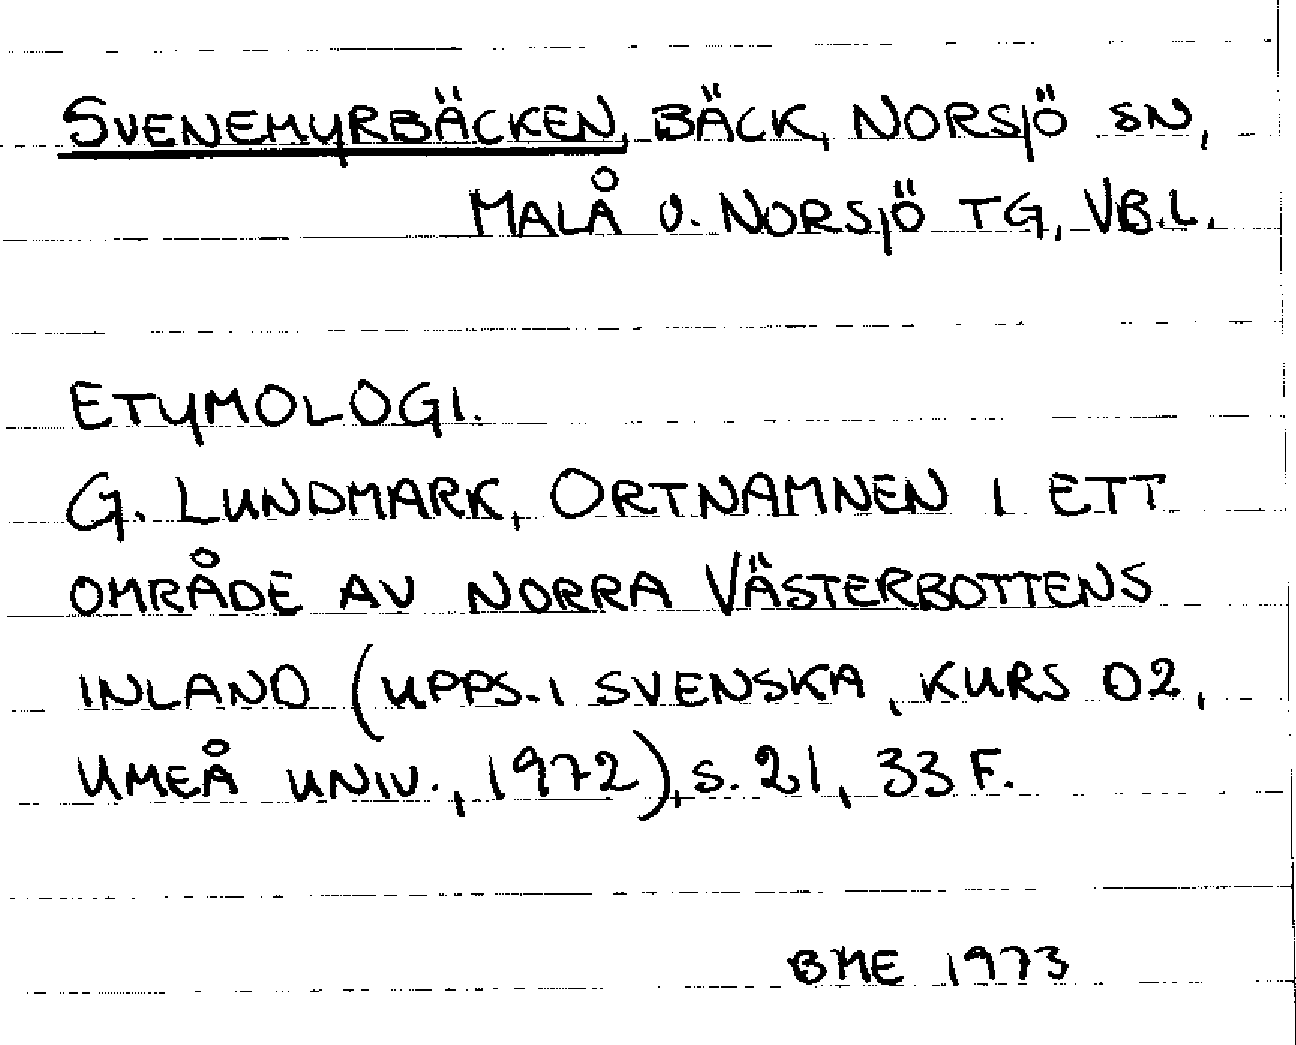 SVENEMYRBÄCKEN, BÄCK, NORSJÖ SN,
MALÅ O. NORSJÖ TG, VB.L.
ETYMOLOGI.
G. LUNDMARK, ORTNAMNEN I ETT
OMRÅDE AV NORRA VÄSTERBOTTENS
INLAND (UPPS. I SVENSKA, KURS 02,
UMEÅ UNIV., 1972), S. 21, 33 F.
BME 1973